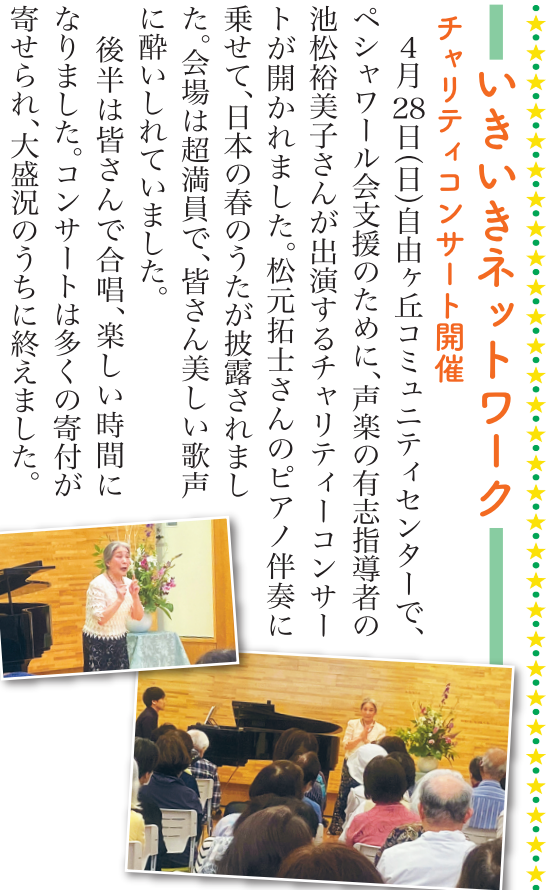 いきいきネットワーク
チャリティコンサート開催
４月28日（日）自由ヶ丘コミュニティセンターで、
ペシャワール会支援のために、声楽の有志指導者の
池松裕美子さんが出演するチャリティーコンサー
トが開かれました。松元拓士さんのピアノ伴奏に
乗せて、日本の春のうたが披露されまし
た。会場は超満員で、皆さん美しい歌声
に酔いしれていました。
後半は皆さんで合唱、楽しい時間に
なりました。コンサートは多くの寄付が
寄せられ、大盛況のうちに終えました。